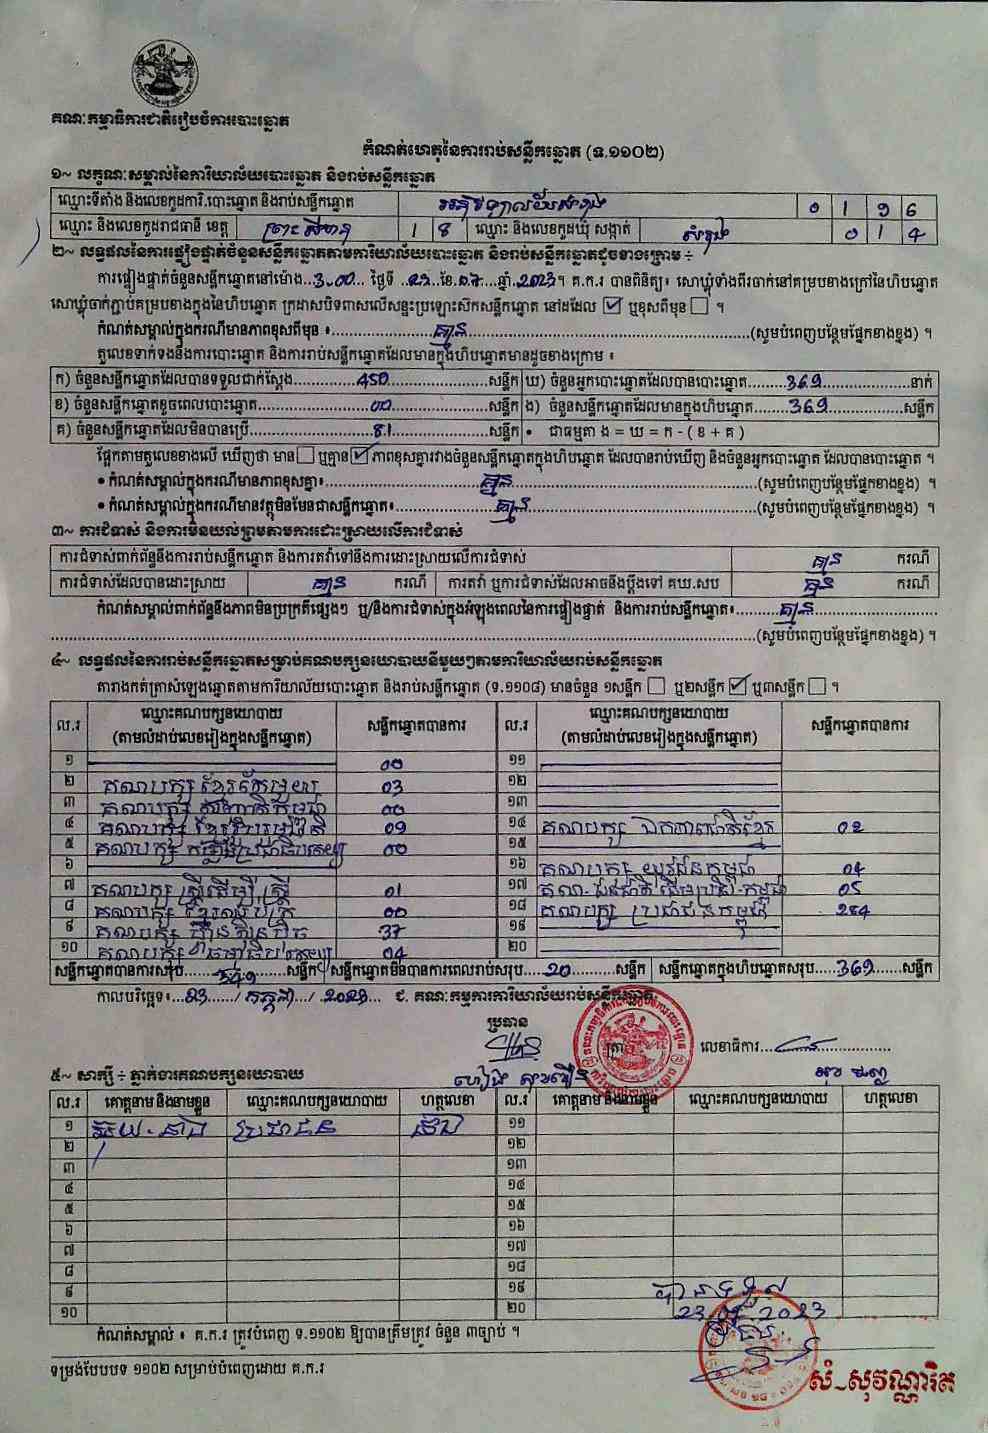 គណៈកម្មាធិការជាតិរៀបចំការបោះឆ្នោត
កំណត់ហេតុនៃការរាប់សន្លឹកឆ្នោត (ទ.១១០២)
១~ លក្ខណៈសម្គាល់នៃការិយាល័យបោះឆ្នោត និងរាប់សន្លឹកឆ្នោត
ឈ្មោះទីតាំង និងលេខកូដការិ.បោះឆ្នោត និងរាប់សន្លឹកឆ្នោត 0 1 9 6
ឈ្មោះ និងលេខកូដរាជធានី ខេត្ត ព្រះសីហនុ 1 8 ឈ្មោះ និងលេខកូដឃុំ សង្កាត់ 0 1 4
២~ លទ្ធផលនៃការផ្ទៀងផ្ទាត់ចំនួនសន្លឹកឆ្នោតតាមការិយាល័យបោះឆ្នោត និងរាប់សន្លឹកឆ្នោតដូចខាងក្រោម ÷
ការផ្ទៀងផ្ទាត់ចំនួនសន្លឹកឆ្នោតនៅម៉ោង...3:00... ថ្ងៃទី ..23..ខែ.07...ឆ្នាំ.2023។ គ.ក.រ បានពិនិត្យ៖ សោឃ្លុំទាំងពីរចាក់នៅគម្របខាងក្រៅនៃហិបឆ្នោត
សោឃ្លុំចាក់ភ្ជាប់គម្របខាងក្នុងនៃហិបឆ្នោត ក្រដាសបិទពាសលើសន្ទះប្រឡោះស៊កសន្លឹកឆ្នោត នៅដដែល ☑ ឬខុសពីមុន ☐ ។
កំណត់សម្គាល់ក្នុងករណីមានភាពខុសពីមុន ៖ គ្មាន (សូមបំពេញបន្ថែមផ្នែកខាងខ្នង) ។
តួលេខទាក់ទងនឹងការបោះឆ្នោត និងការរាប់សន្លឹកឆ្នោតដែលមានក្នុងហិបឆ្នោតមានដូចខាងក្រោម ៖
ក) ចំនួនសន្លឹកឆ្នោតដែលបានទទួលជាក់ស្តែង 450 សន្លឹក ឃ) ចំនួនអ្នកបោះឆ្នោតដែលបានបោះឆ្នោត 369 នាក់
ខ) ចំនួនសន្លឹកឆ្នោតខូចពេលបោះឆ្នោត 00 សន្លឹក ង) ចំនួនសន្លឹកឆ្នោតដែលមានក្នុងហិបឆ្នោត 369 សន្លឹក
គ) ចំនួនសន្លឹកឆ្នោតដែលមិនបានប្រើ 81 សន្លឹក • ជាធម្មតា ង = ឃ = ក - ( ខ + គ )
ផ្អែកតាមតួលេខខាងលើ ឃើញថា មាន ☐ ឬគ្មាន ☑ ភាពខុសគ្នារវាងចំនួនសន្លឹកឆ្នោតក្នុងហិបឆ្នោត ដែលបានរាប់ឃើញ និងចំនួនអ្នកបោះឆ្នោត ដែលបានបោះឆ្នោត ។
• កំណត់សម្គាល់ក្នុងករណីមានភាពខុសគ្នា៖ គ្មាន (សូមបំពេញបន្ថែមផ្នែកខាងខ្នង) ។
• កំណត់សម្គាល់ក្នុងករណីមានវត្ថុមិនមែនជាសន្លឹកឆ្នោត៖ គ្មាន (សូមបំពេញបន្ថែមផ្នែកខាងខ្នង) ។
៣~ ការជំទាស់ និងការមិនយល់ព្រមតាមការដោះស្រាយលើការជំទាស់
ការជំទាស់ពាក់ព័ន្ធនឹងការរាប់សន្លឹកឆ្នោត និងការតវ៉ាទៅនឹងការដោះស្រាយលើការជំទាស់ គ្មាន ករណី
ការជំទាស់ដែលបានដោះស្រាយ គ្មាន ករណី ការតវ៉ា ឬការជំទាស់ដែលអាចនឹងប្តឹងទៅ គឃ.សប គ្មាន ករណី
កំណត់សម្គាល់ពាក់ព័ន្ធនឹងភាពមិនប្រក្រតីផ្សេងៗ ឬ/និងការជំទាស់ក្នុងអំឡុងពេលនៃការផ្ទៀងផ្ទាត់ និងការរាប់សន្លឹកឆ្នោត៖ គ្មាន
(សូមបំពេញបន្ថែមផ្នែកខាងខ្នង) ។
៤~ លទ្ធផលនៃការរាប់សន្លឹកឆ្នោតសម្រាប់គណបក្សនយោបាយនីមួយៗតាមការិយាល័យរាប់សន្លឹកឆ្នោត
តារាងកត់ត្រាសំឡេងឆ្នោតតាមការិយាល័យបោះឆ្នោត និងរាប់សន្លឹកឆ្នោត (ទ.១១០៨) មានចំនួន ១សន្លឹក ☐ ឬ២សន្លឹក ☑ ឬ៣សន្លឹក ☐ ។
ល.រ ឈ្មោះគណបក្សនយោបាយ (តាមលំដាប់លេខរៀងក្នុងសន្លឹកឆ្នោត) សន្លឹកឆ្នោតបានការ ល.រ ឈ្មោះគណបក្សនយោបាយ (តាមលំដាប់លេខរៀងក្នុងសន្លឹកឆ្នោត) សន្លឹកឆ្នោតបានការ
១ 00 ១១
២ គណបក្ស ខ្មែរតែមួយ 03 ១២
៣ គណបក្ស 00 ១៣
៤ គណបក្ស 09 ១៤ គណបក្ស ឯកភាពជាតិខ្មែរ 02
៥ គណបក្ស ប្រជាធិបតេយ្យ 00 ១៥
៦ ១៦ គណបក្ស យុវជនកម្ពុជា 04
៧ គណបក្ស ស្ត្រីដើម្បីស្ត្រី 01 ១៧ គណ. ជនជាតិដើមប្រជា.កម្ពុជា 05
៨ គណបក្ស 00 ១៨ គណបក្ស ប្រជាជនកម្ពុជា 284
៩ គណបក្ស ហ៊្វុនស៊ិនប៉ិច 37 ១៩
១០ គណបក្ស 04 ២០
សន្លឹកឆ្នោតបានការសរុប 349 សន្លឹក សន្លឹកឆ្នោតមិនបានការពេលរាប់សរុប 20 សន្លឹក សន្លឹកឆ្នោតក្នុងហិបឆ្នោតសរុប 369 សន្លឹក
កាលបរិច្ឆេទ៖ 23 / កក្កដា / 2023 ជ. គណៈកម្មការការិយាល័យរាប់សន្លឹកឆ្នោត
ប្រធាន
លេខាធិការ
៥~ សាក្សី ÷ ភ្នាក់ងារគណបក្សនយោបាយ
ល.រ គោត្តនាម និងនាមខ្លួន ឈ្មោះគណបក្សនយោបាយ ហត្ថលេខា ល.រ គោត្តនាម និងនាមខ្លួន ឈ្មោះគណបក្សនយោបាយ ហត្ថលេខា
១ ប្រជាជន ១១
២ ១២
៣ ១៣
៤ ១៤
៥ ១៥
៦ ១៦
៧ ១៧
៨ ១៨
៩ ១៩
១០ ២០
បានទទួល
23.07.2023
កំណត់សម្គាល់ ៖ គ.ក.រ ត្រូវបំពេញ ទ.១១០២ ឱ្យបានត្រឹមត្រូវ ចំនួន ៣ច្បាប់ ។
ទម្រង់បែបបទ ១១០២ សម្រាប់បំពេញដោយ គ.ក.រ
សំ-សុវណ្ណារិត